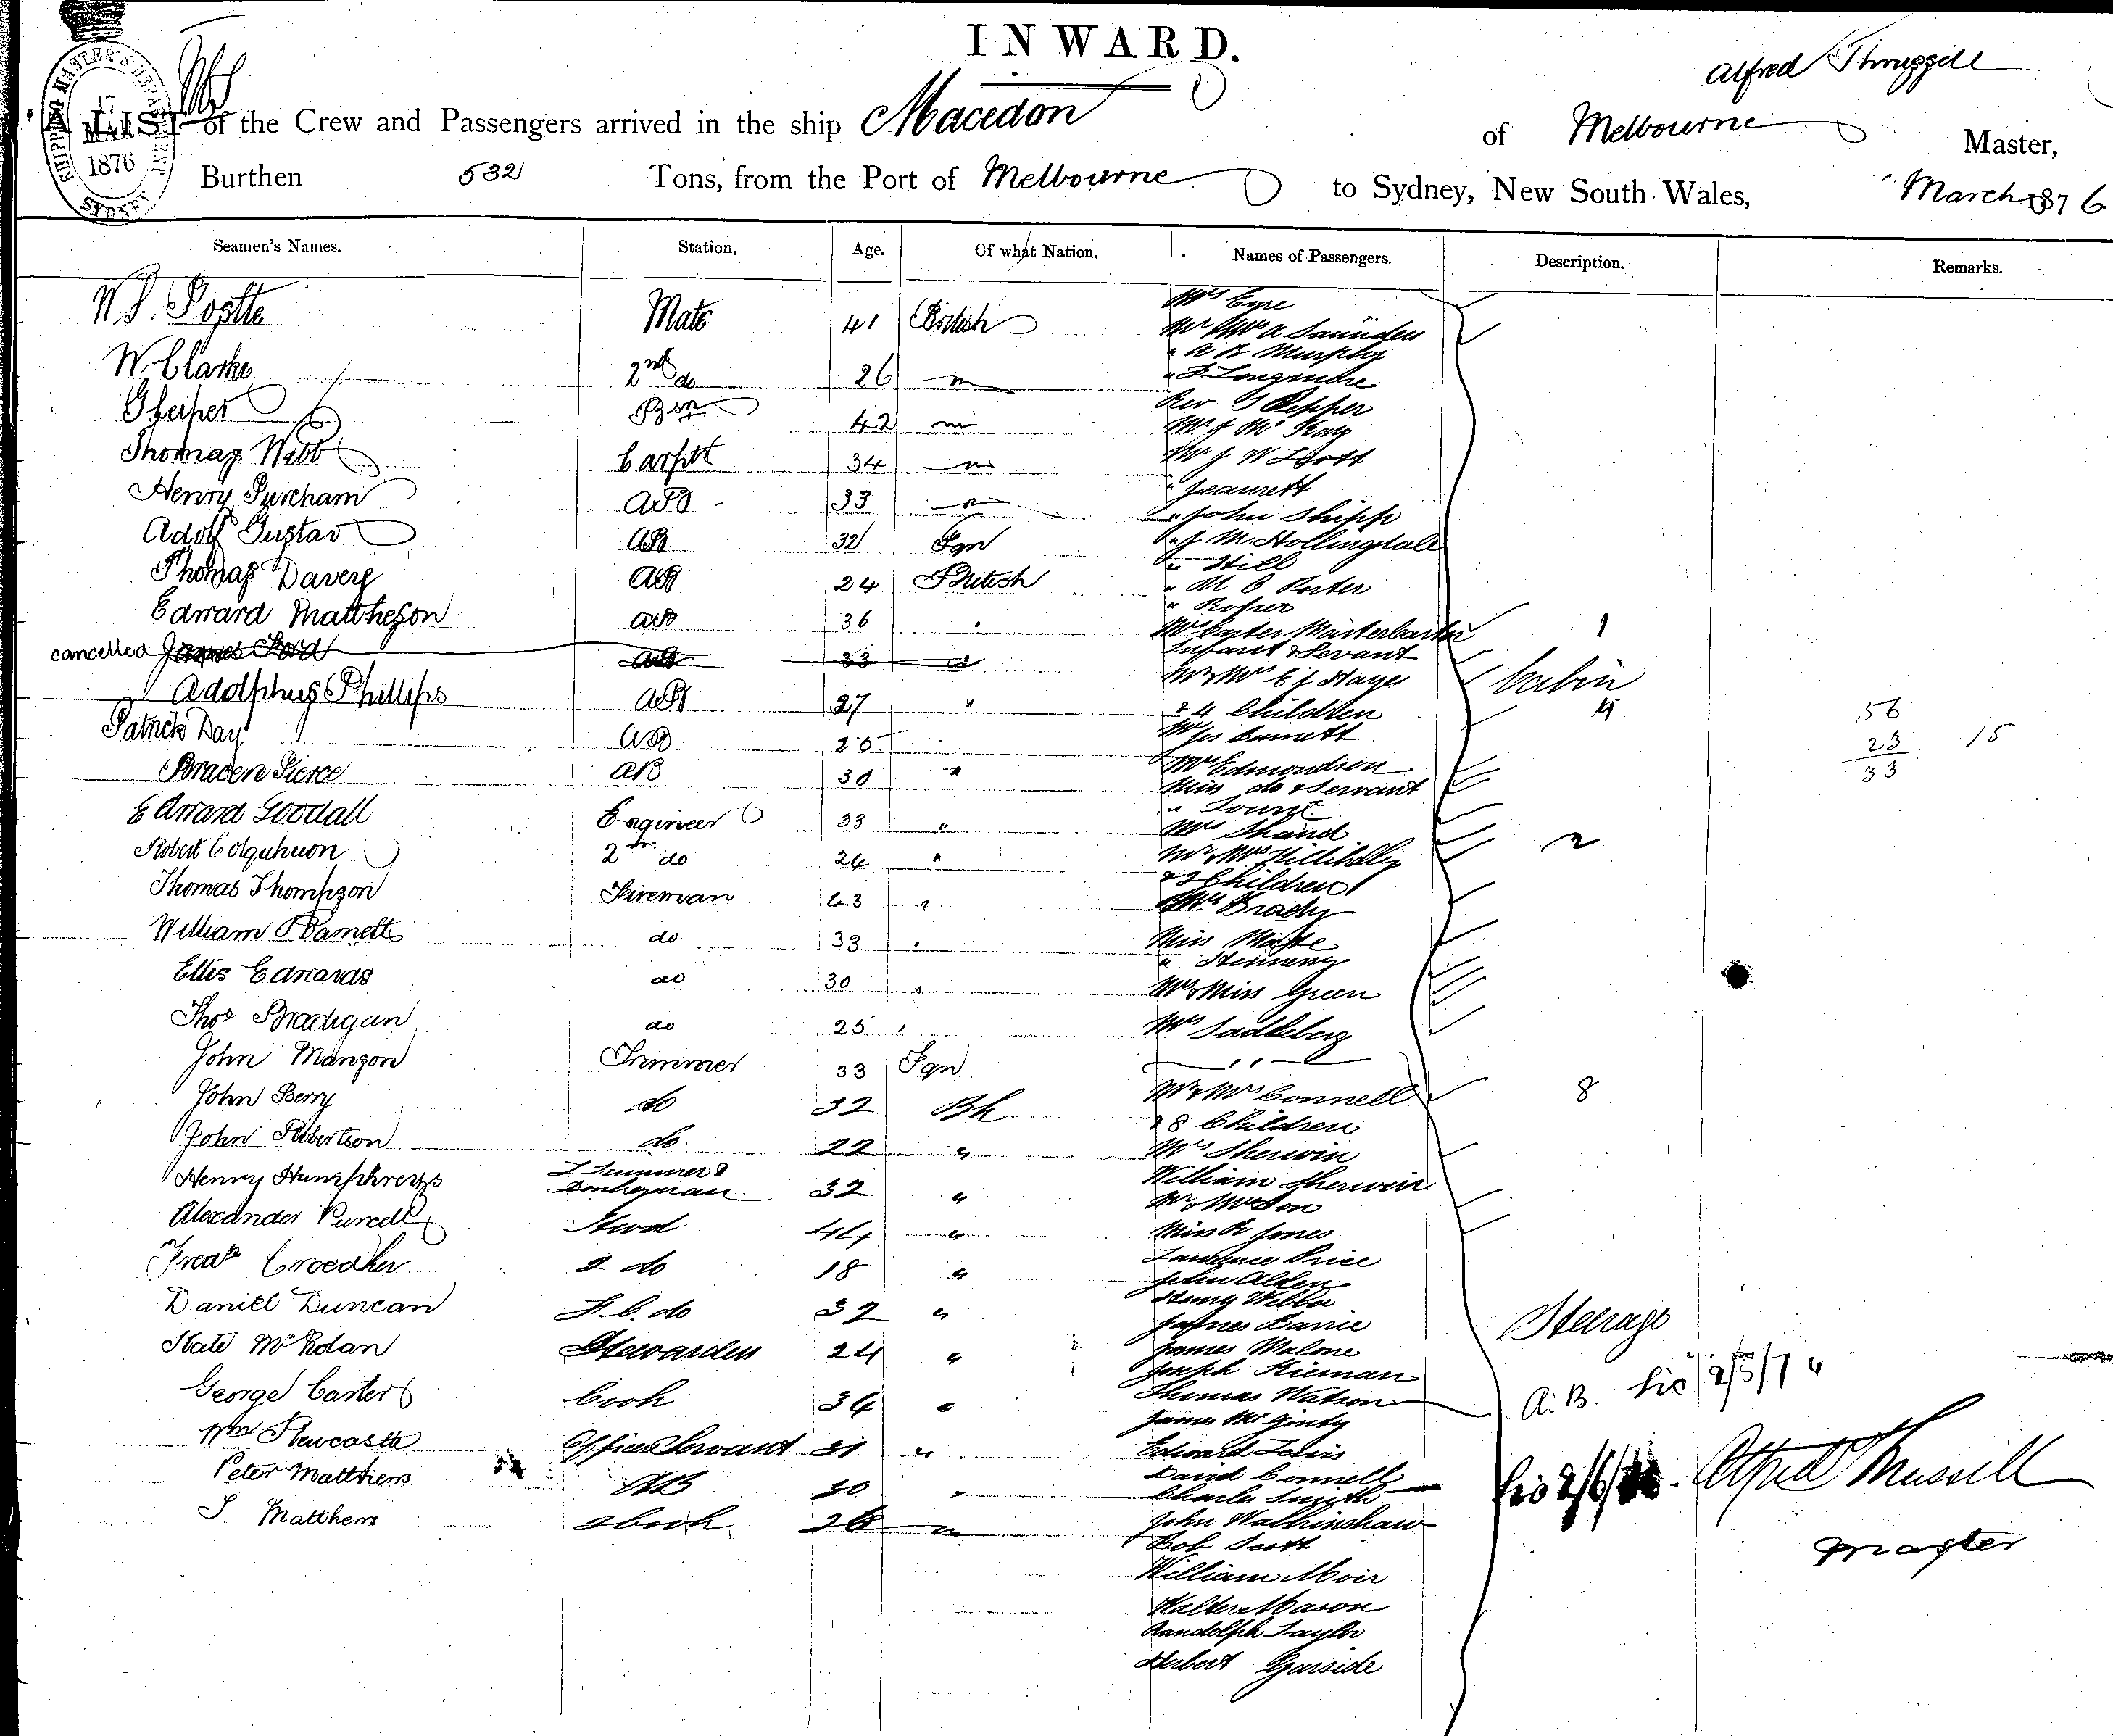 INWARD.
Alfred Thruggell
SHIPPING MASTER'S DEPARTMENT
17
MAR
1876
SYDNEY
A LIST of the Crew and Passengers arrived in the ship Macedon of Melbourne Master,
Burthen 532 Tons, from the Port of Melbourne to Sydney, New South Wales, March 1876
Seamen's Names. Station, Age. Of what Nation. Names of Passengers. Description. Remarks.
W. S. Mate 41 British
W. Clarke 2nd do 26 "
G Leiper Bsn 42 "
Thomas Webb Carptr 34 "
Henry Purcham AB 33 "
Adolf Gustav AB 32 Fgn
Thomas Davey AB 24 British
Edward Mattheson AB 36 "
cancelled James Ford AB 33 "
Adolphus Phillips AB 27 "
Patrick Day AB 26 "
Braden Pierce AB 30 "
Edward Goodall Engineer 33 "
Robert Colquhuon 2nd do 24 "
Thomas Thompson Fireman 43 "
William Barnett do 33 "
Ellis Edwards do 30 "
Thos Bradigan do 25 "
John Manson Trimmer 33 Fgn
John Berry do 32 Bh
John Robertson do 22 "
Henry Humphreys Trimmer & Donkeyman 32 "
Alexander Purcell Stwd 44 "
Fredk Croedher 2 do 18 "
Daniel Duncan F. C. do 32 "
Kate McKolan Stewardess 24 "
George Carter Cook 34 "
Wm Newcastle Officers Servant 31 "
Peter Matthews AB 30 "
J Matthews 2 Cook 26 "
Mrs Eyre
Mr & Mrs A Saunders
" A K Murphy
" F Longmore
Rev G Pepper
Mr J McKay
Mr J W Scott
" Jeaurett
" John Shipp
" J M Hollingdale
" Hill
" M C Porter
" Roper
Mrs Carter Master Carter 1
Infant & Servant
Mr & Mrs C J Hayes Cabin
& 4 Children 4
Mr Jos Barnett
Mrs Edmondson
Miss do & Servant
" Young
Mrs Shand
Mr & Mrs 2
& 2 Children
Mrs Brady
Miss
" Hennery
Mrs & Miss Green
Mrs Sadleberg
Mr & Mrs Connell 8
& 8 Children
Mrs Sherwin
William Sherwin
Mr & Mrs Son
Miss R Jones
Lawrence Price
John Alden
Henry Webber
James Barrie Steerage
James Malone
Joseph Kiernan
Thomas Watson
James McGinty
Edward Lewis
David Connell
Charles Smyth
John Walkinshaw
Bob Scott
William Moir
Walter Mason
Randolph Taylor
Herbert Garside
56
23 15
33
A. B.
Alfred Thrussell
Master